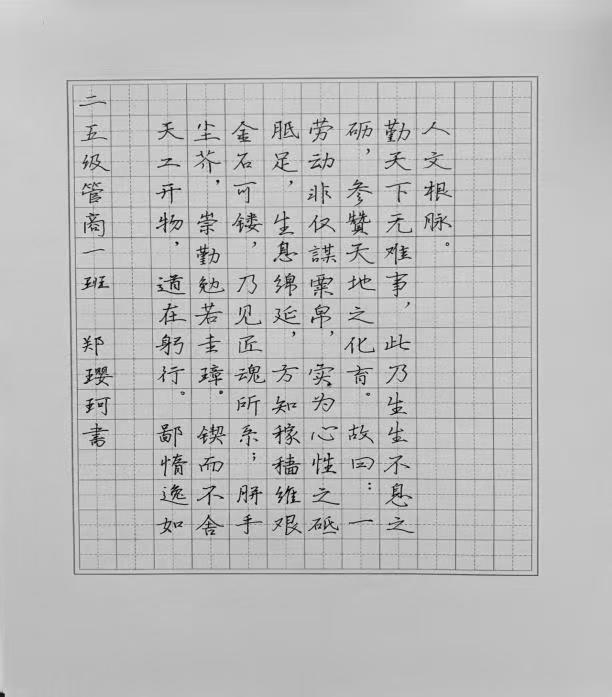 天工开物，道在躬行。鄙惰逸如
尘芥，崇勤勉若圭璋。锲而不舍
金石可镂，乃见匠魂所系；胼手
胝足，生息绵延，方知稼穑维艰
劳动非仅謀粟帛，实为心性之砥
砺，参贊天地之化育。故曰：一
勤天下无难事，此乃生生不息之
人文根脉。
二五级管商一班 郑璎珂書